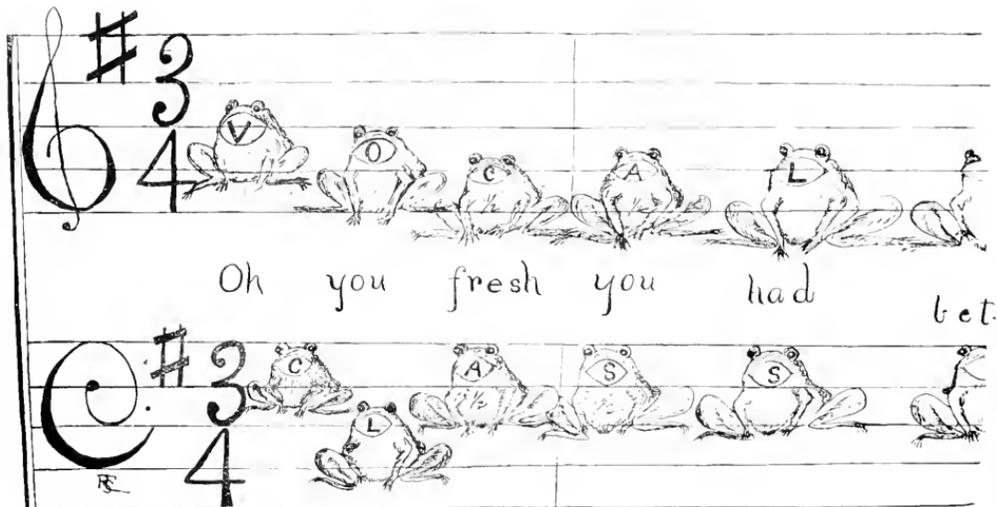 3
4
V O C A L
Oh you fresh you had bet
3
4
C L A S S